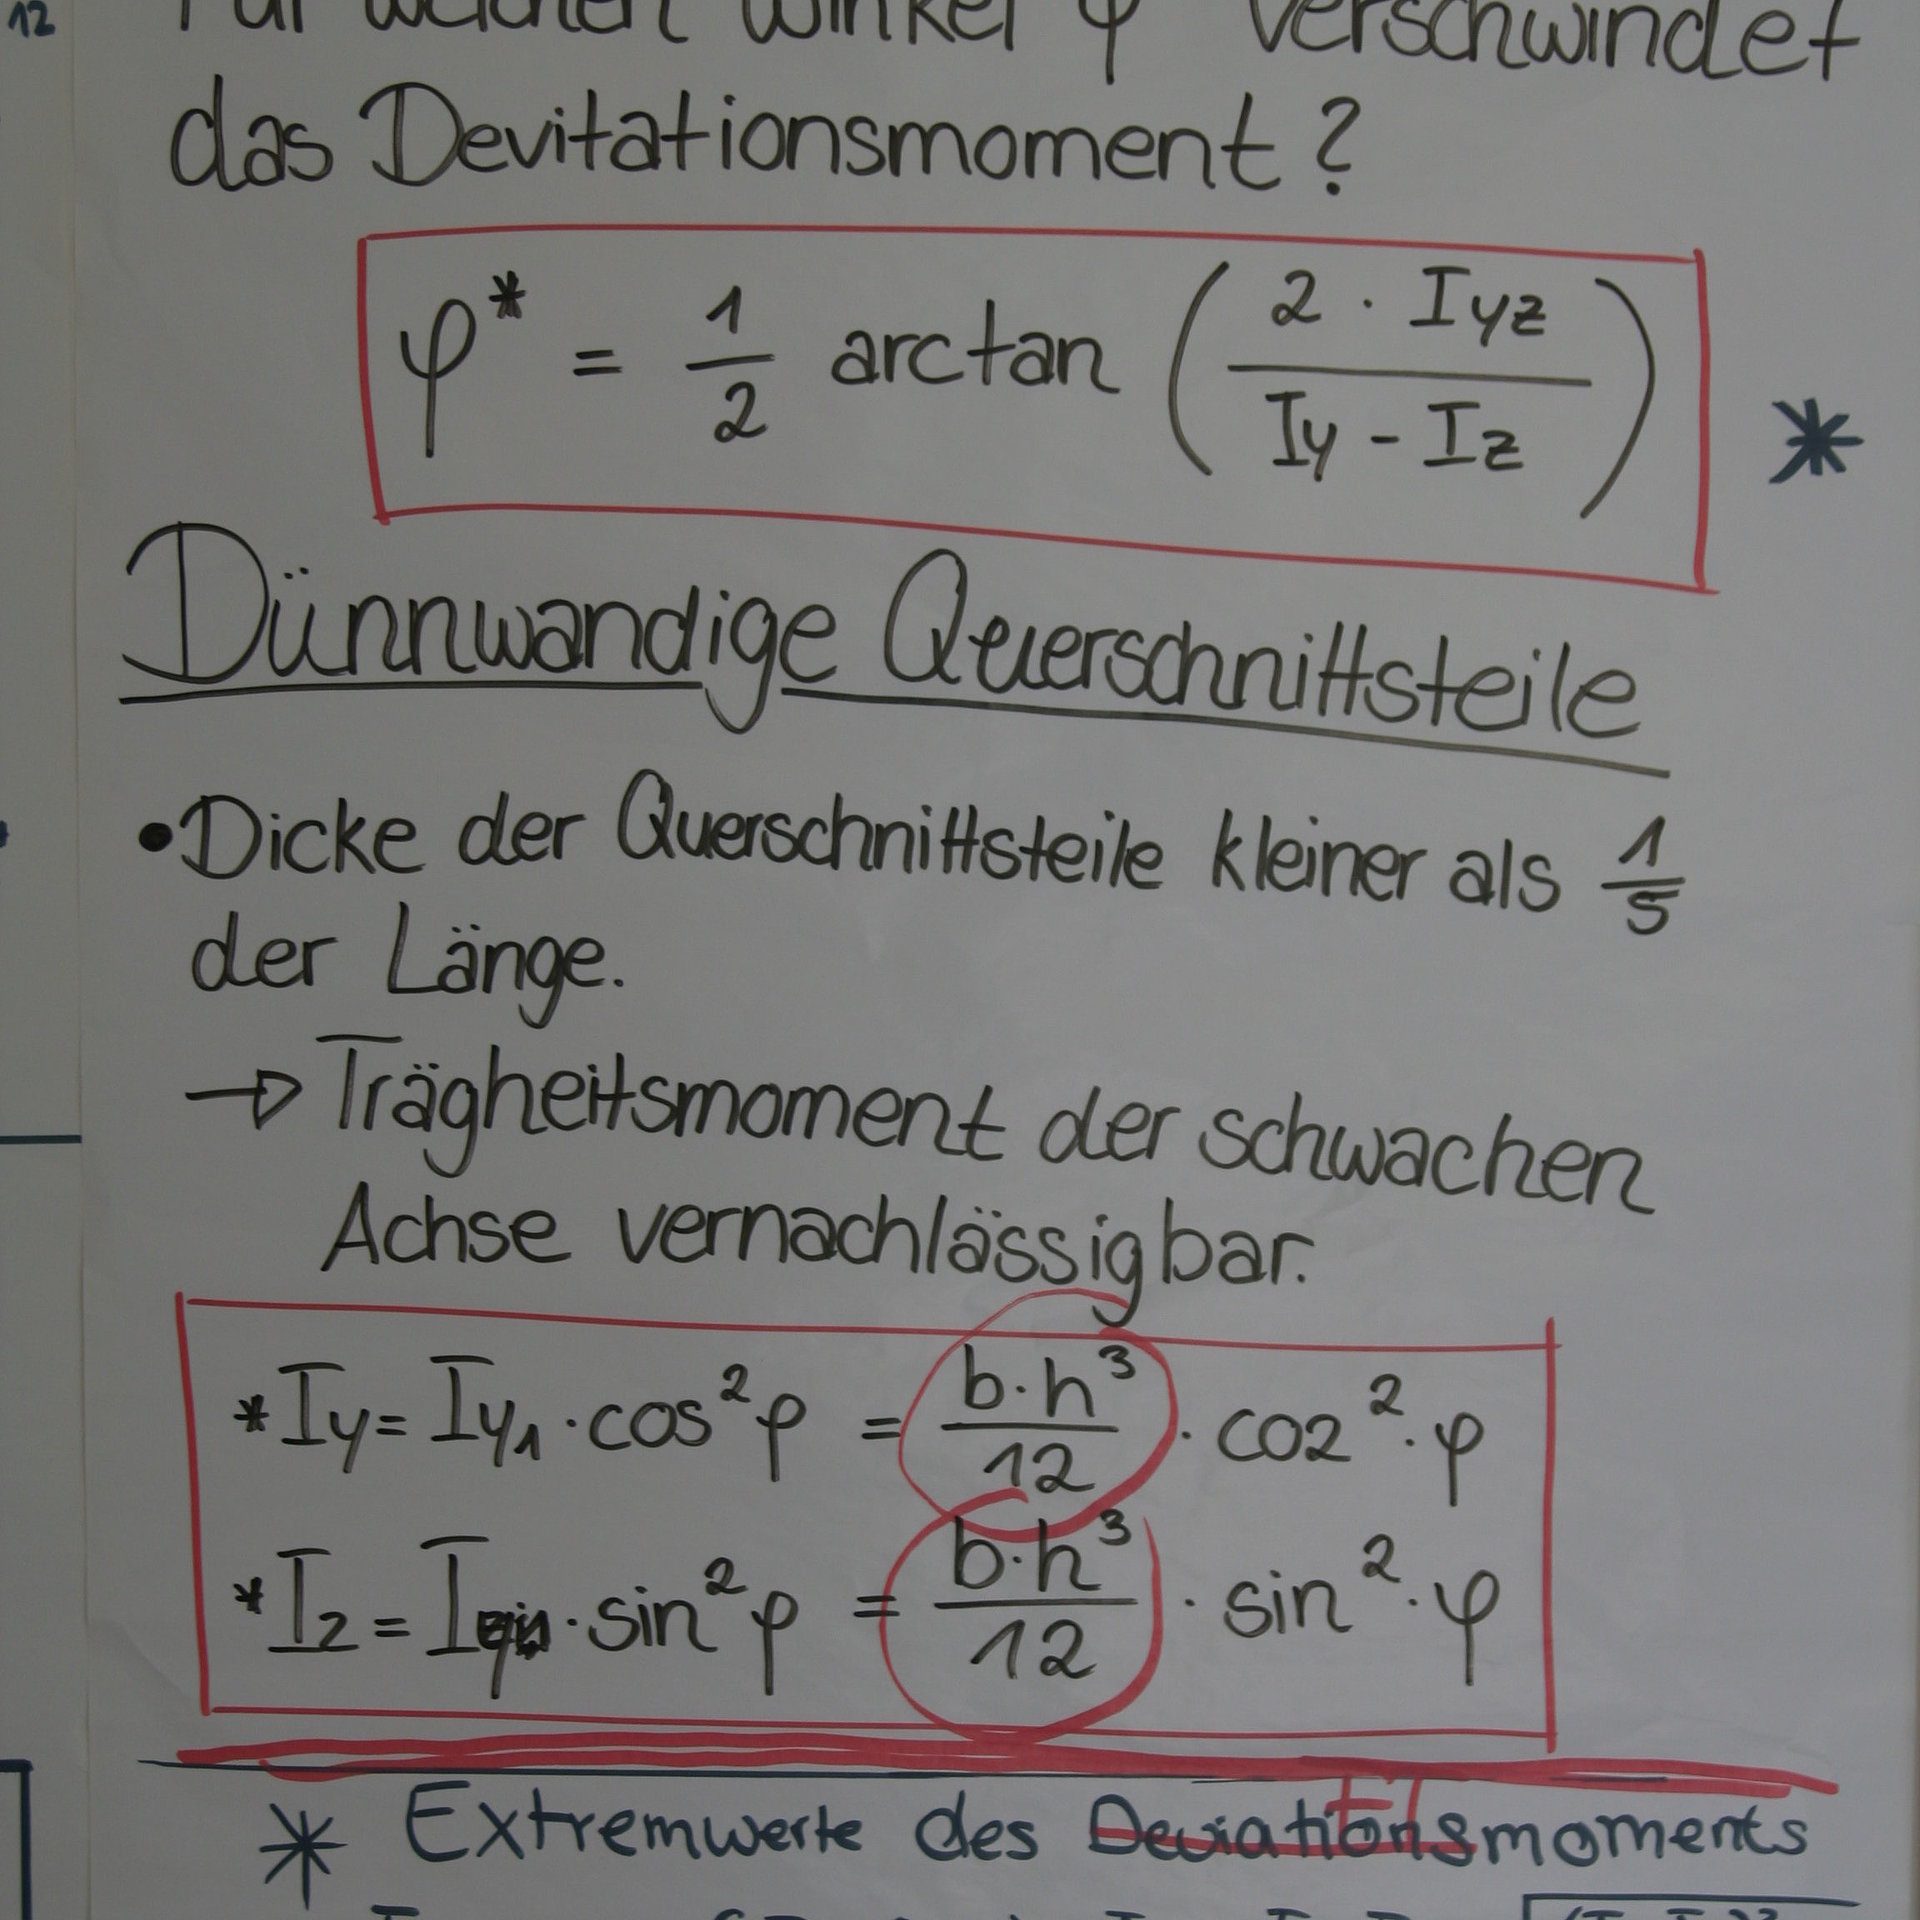 12
Für welchen Winkel φ verschwindet
das Devitationsmoment?
φ* = 1/2 arctan (2 · Iyz / Iy - Iz) *
Dünnwandige Querschnittsteile
• Dicke der Querschnittsteile kleiner als 1/5
der Länge.
→ Trägheitsmoment der schwachen
Achse vernachlässigbar.
* Iy = Iy1 · cos² φ = b·h³/12 · co2² · φ
* Iz = I · sin² φ = b·h³/12 · sin² · φ
* Extremwerte des Deviationsmoments